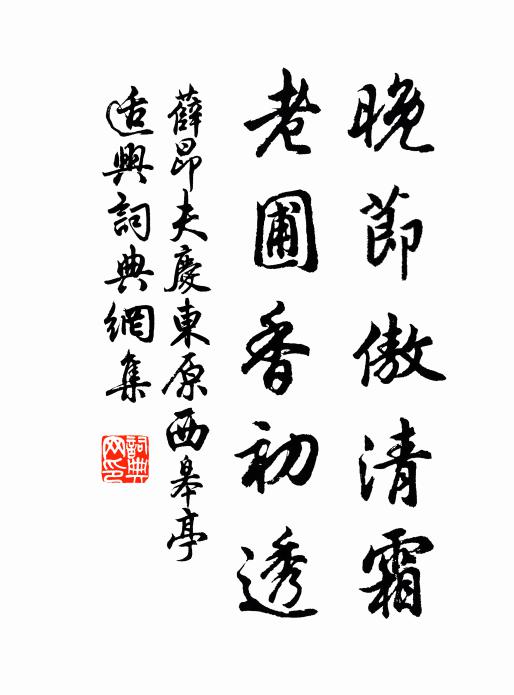 晚節傲清霜
老圃香初透
薛昂夫慶東原西皋亭
適興詞典網集
詞典網印